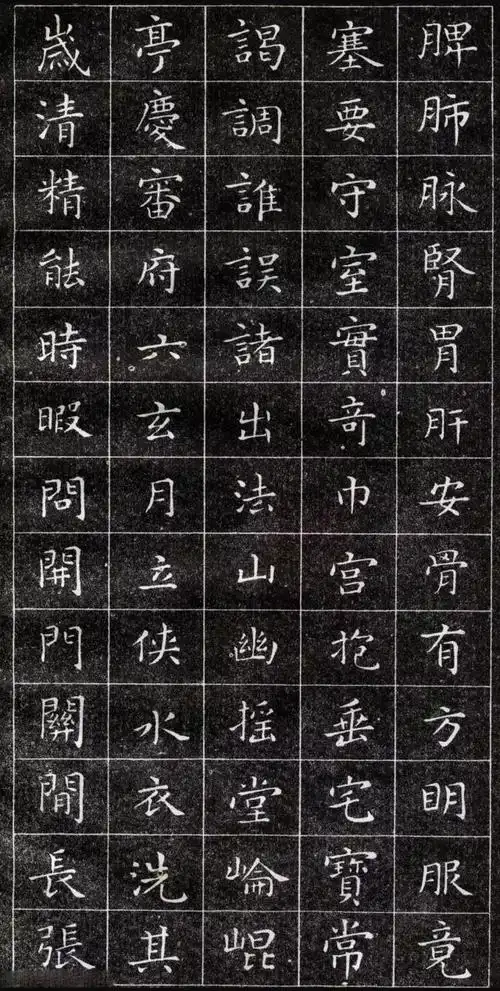 脾肺脉腎胃肝安骨有方明服竟
塞要守室實奇巾宫抱垂宅寶常
謁調誰誤諸出法山幽摇堂崘崐
亭慶審府六玄月立侠水衣洗其
歲清精能時暇問開門關閒長張